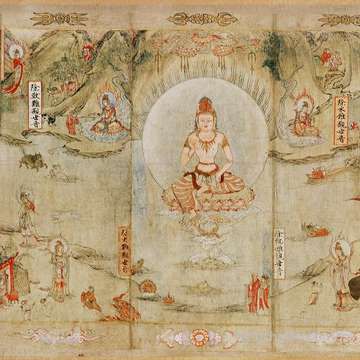 除水難觀世音
除難觀世音
除火難觀世音
除獸難觀世音